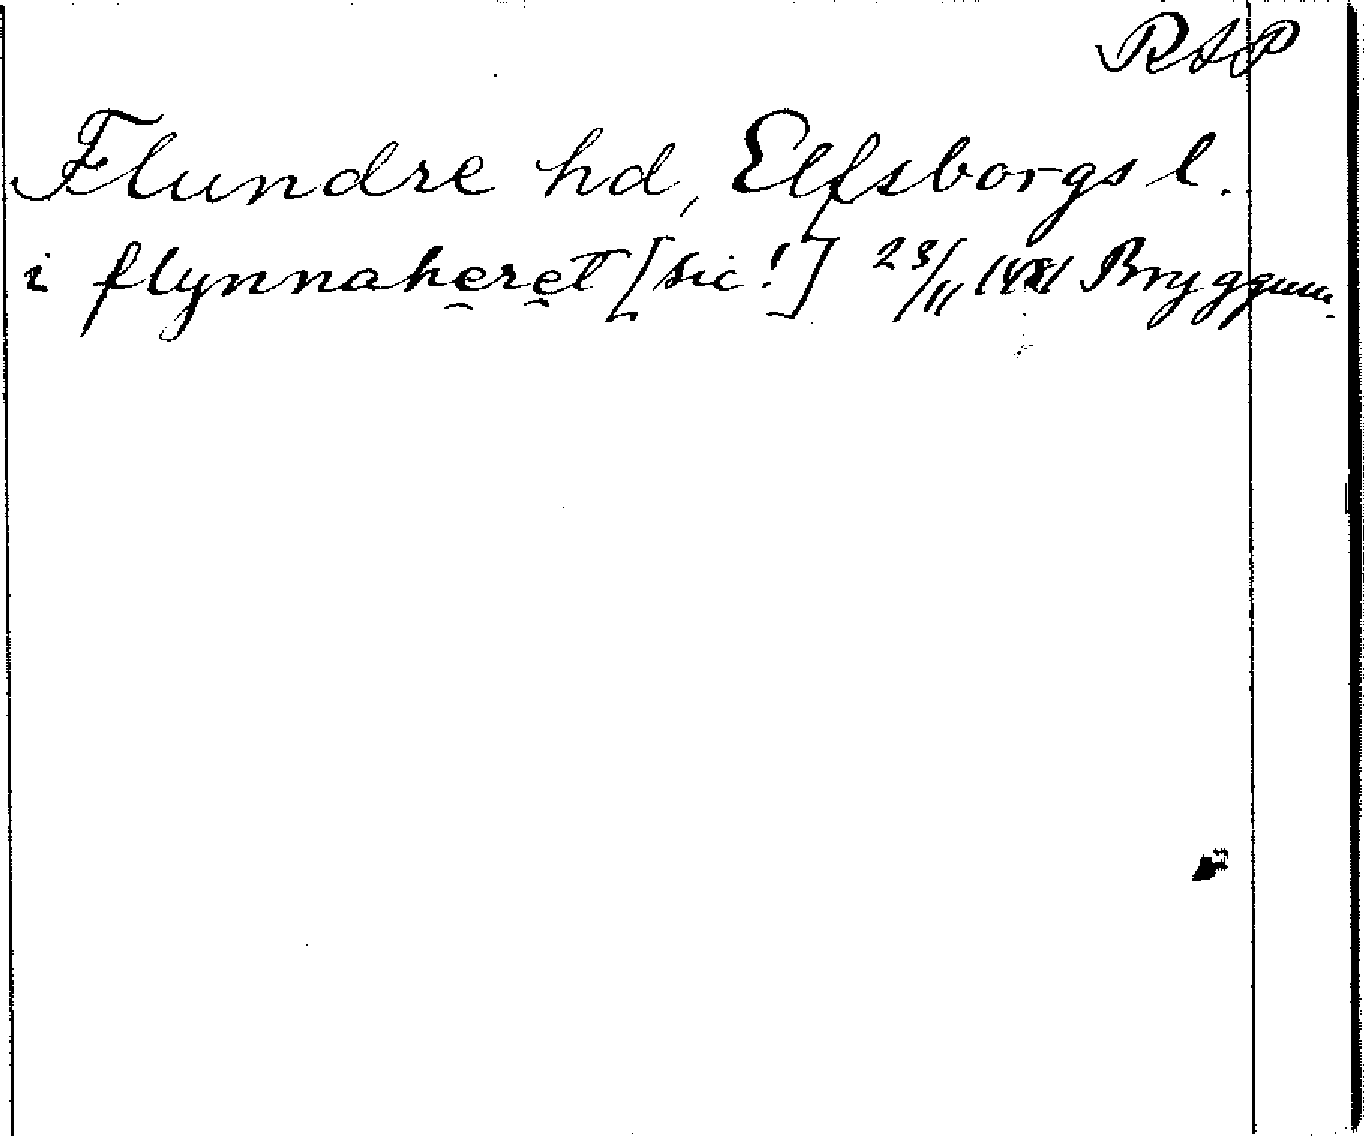 RAP
Flundre hd, Elfsborgs l.
i flynnahęręt [sic!] 23/11 Bryggum.